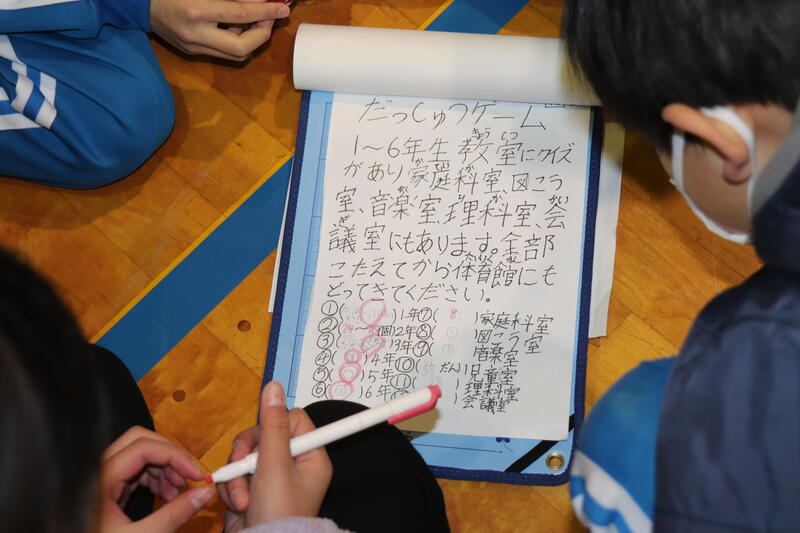 だっしゅつゲーム
1〜6年生教室にクイズ
きょう しつ
があり家庭科室、図こう
か てい か
室、音楽室、理科室、会
がく り か かい
議室にもあります。全部
ぎ
こたえてから体育館にも
たいいくかん
どってきてください。
①( )1年⑦( 8 )家庭科室
②(24〜 個)2年⑧( )図こう室
③( )3年⑨( )音楽室
④( )4年⑩( だん)児童室
⑤( )5年⑪( )理科室
⑥( )6年 ( )会議室